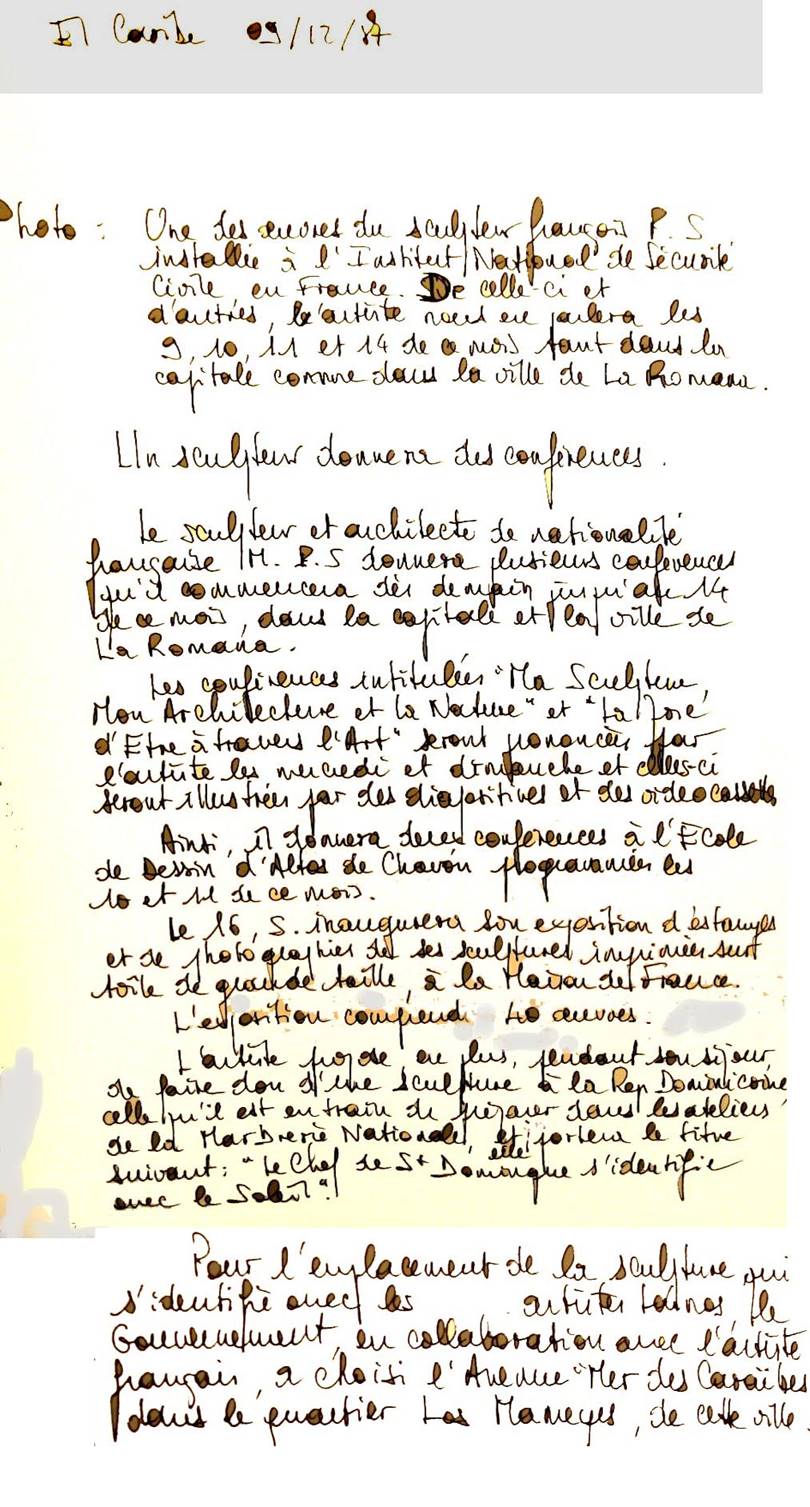 El Caribe 09/12/87
Photo : Une des œuvres du sculpteur français P. S
installée à l'Institut National de Sécurité
Civile, en France. De celle-ci et
d'autres, l'artiste nous en parlera les
9, 10, 11 et 14 de ce mois tant dans la
capitale comme dans la ville de La Romana.
Un sculpteur donnera des conférences.
Le sculpteur et architecte de nationalité
française M. P. S donnera plusieurs conférences
qu'il commencera dès demain jusqu'au 14
de ce mois, dans la capitale et la ville de
La Romana.
Les conférences intitulées "Ma Sculpture,
Mon Architecture et la Nature" et "La Joie
d'Etre à travers l'Art" seront prononcées par
l'artiste les mercredi et dimanche et celles-ci
seront illustrées par des diapositives et des videocassettes
Ainsi, il donnera deux conférences à l'Ecole
de Dessin d'Altos de Chavón programmées les
10 et 11 de ce mois.
Le 16, S. inaugurera son exposition d'estampes
et de photographies de ses sculptures imprimées sur
toile de grande taille, à la Maison de France.
L'exposition comprend 40 œuvres.
L'artiste propose en plus, pendant son séjour,
de faire don d'une sculpture à la Rep Dominicaine
celle qu'il est en train de préparer dans les ateliers
de la Marbrerie Nationale, et elle portera le titre
suivant : "Le Chef de St Domingue s'identifie
avec le Soleil".
Pour l'emplacement de la sculpture qui
s'identifie avec les artistes taïnos, le
Gouvernement, en collaboration avec l'artiste
français, a choisi l'Avenue "Mer des Caraïbes
dans le quartier Los Mameyes, de cette ville.